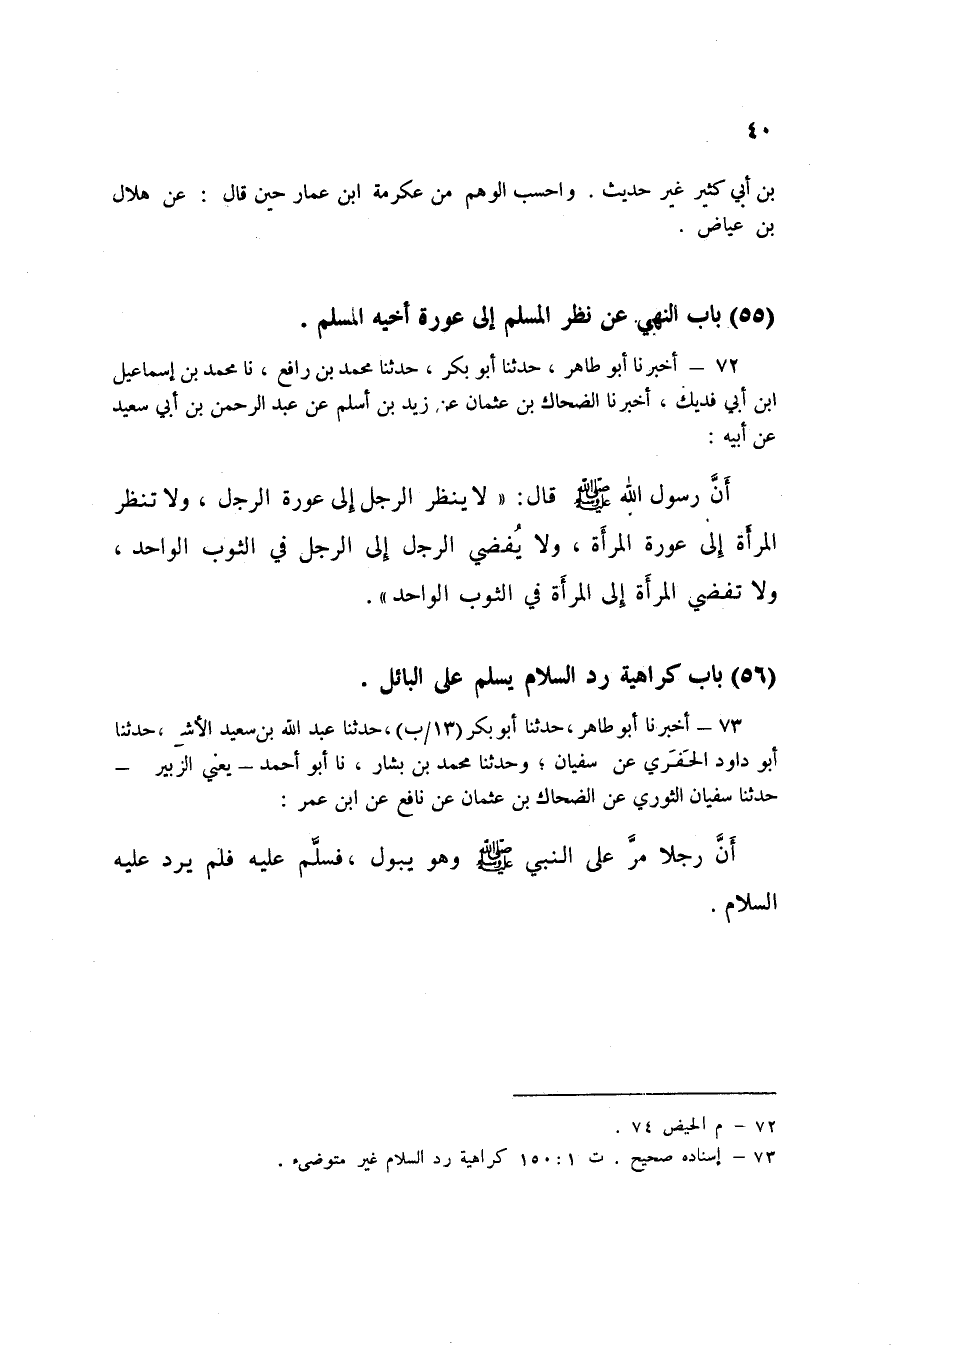 ٤٠
بن أبي كثير غير حديث . واحسب الوهم من عكرمة ابن عمار حين قال : عن هلال
بن عياض .
(٥٥) باب النهي عن نظر المسلم إلى عورة أخيه المسلم .
٧٢ – أخبرنا أبو طاهر ، حدثنا أبو بكر ، حدثنا محمد بن رافع ، نا محمد بن إسماعيل
ابن أبي فديك ، أخبرنا الضحاك بن عثمان عن زيد بن أسلم عن عبد الرحمن بن أبي سعيد
عن أبيه :
أنَّ رسول الله ﷺ قال : « لا ينظر الرجل إلى عورة الرجل ، ولا تنظر
المرأة إلى عورة المرأة ، ولا يُفضي الرجل إلى الرجل في الثوب الواحد ،
ولا تفضي المرأة إلى المرأة في الثوب الواحد » .
(٥٦) باب كراهية رد السلام يسلم على البائل .
٧٣ – أخبرنا أبو طاهر ، حدثنا أبو بكر (١٣/ب) ، حدثنا عبد الله بن سعيد الأشـ ، حدثنا
أبو داود الحَفَري عن سفيان ؛ وحدثنا محمد بن بشار ، نا أبو أحمد – يعني الزبير –
حدثنا سفيان الثوري عن الضحاك بن عثمان عن نافع عن ابن عمر :
أنَّ رجلا مرَّ على النبي ﷺ وهو يبول ، فسلَّم عليه فلم يرد عليه
السلام .
٧٢ – م الحيض ٧٤ .
٧٣ – إسناده صحيح . ت ١ : ١٥٠ كراهية رد السلام غير متوضىء .